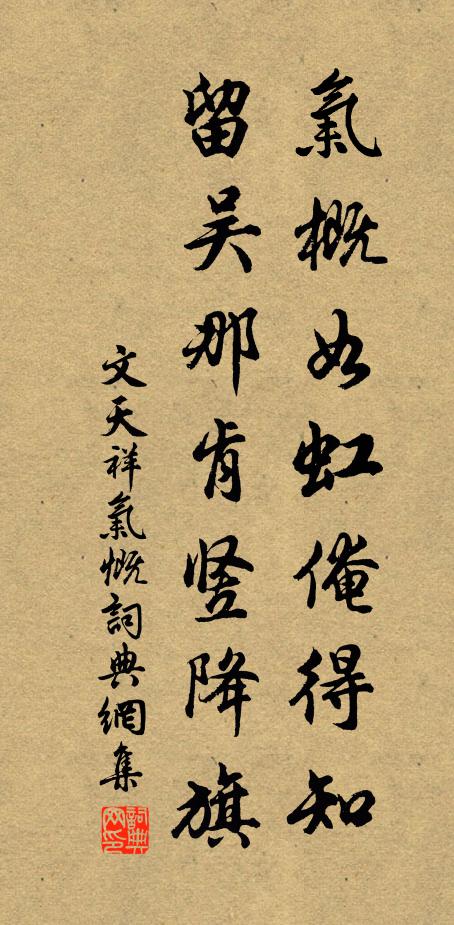 氣概如虹俺得知
留吴那肯豎降旗
文天祥氣慨詞典網集
詞典网印